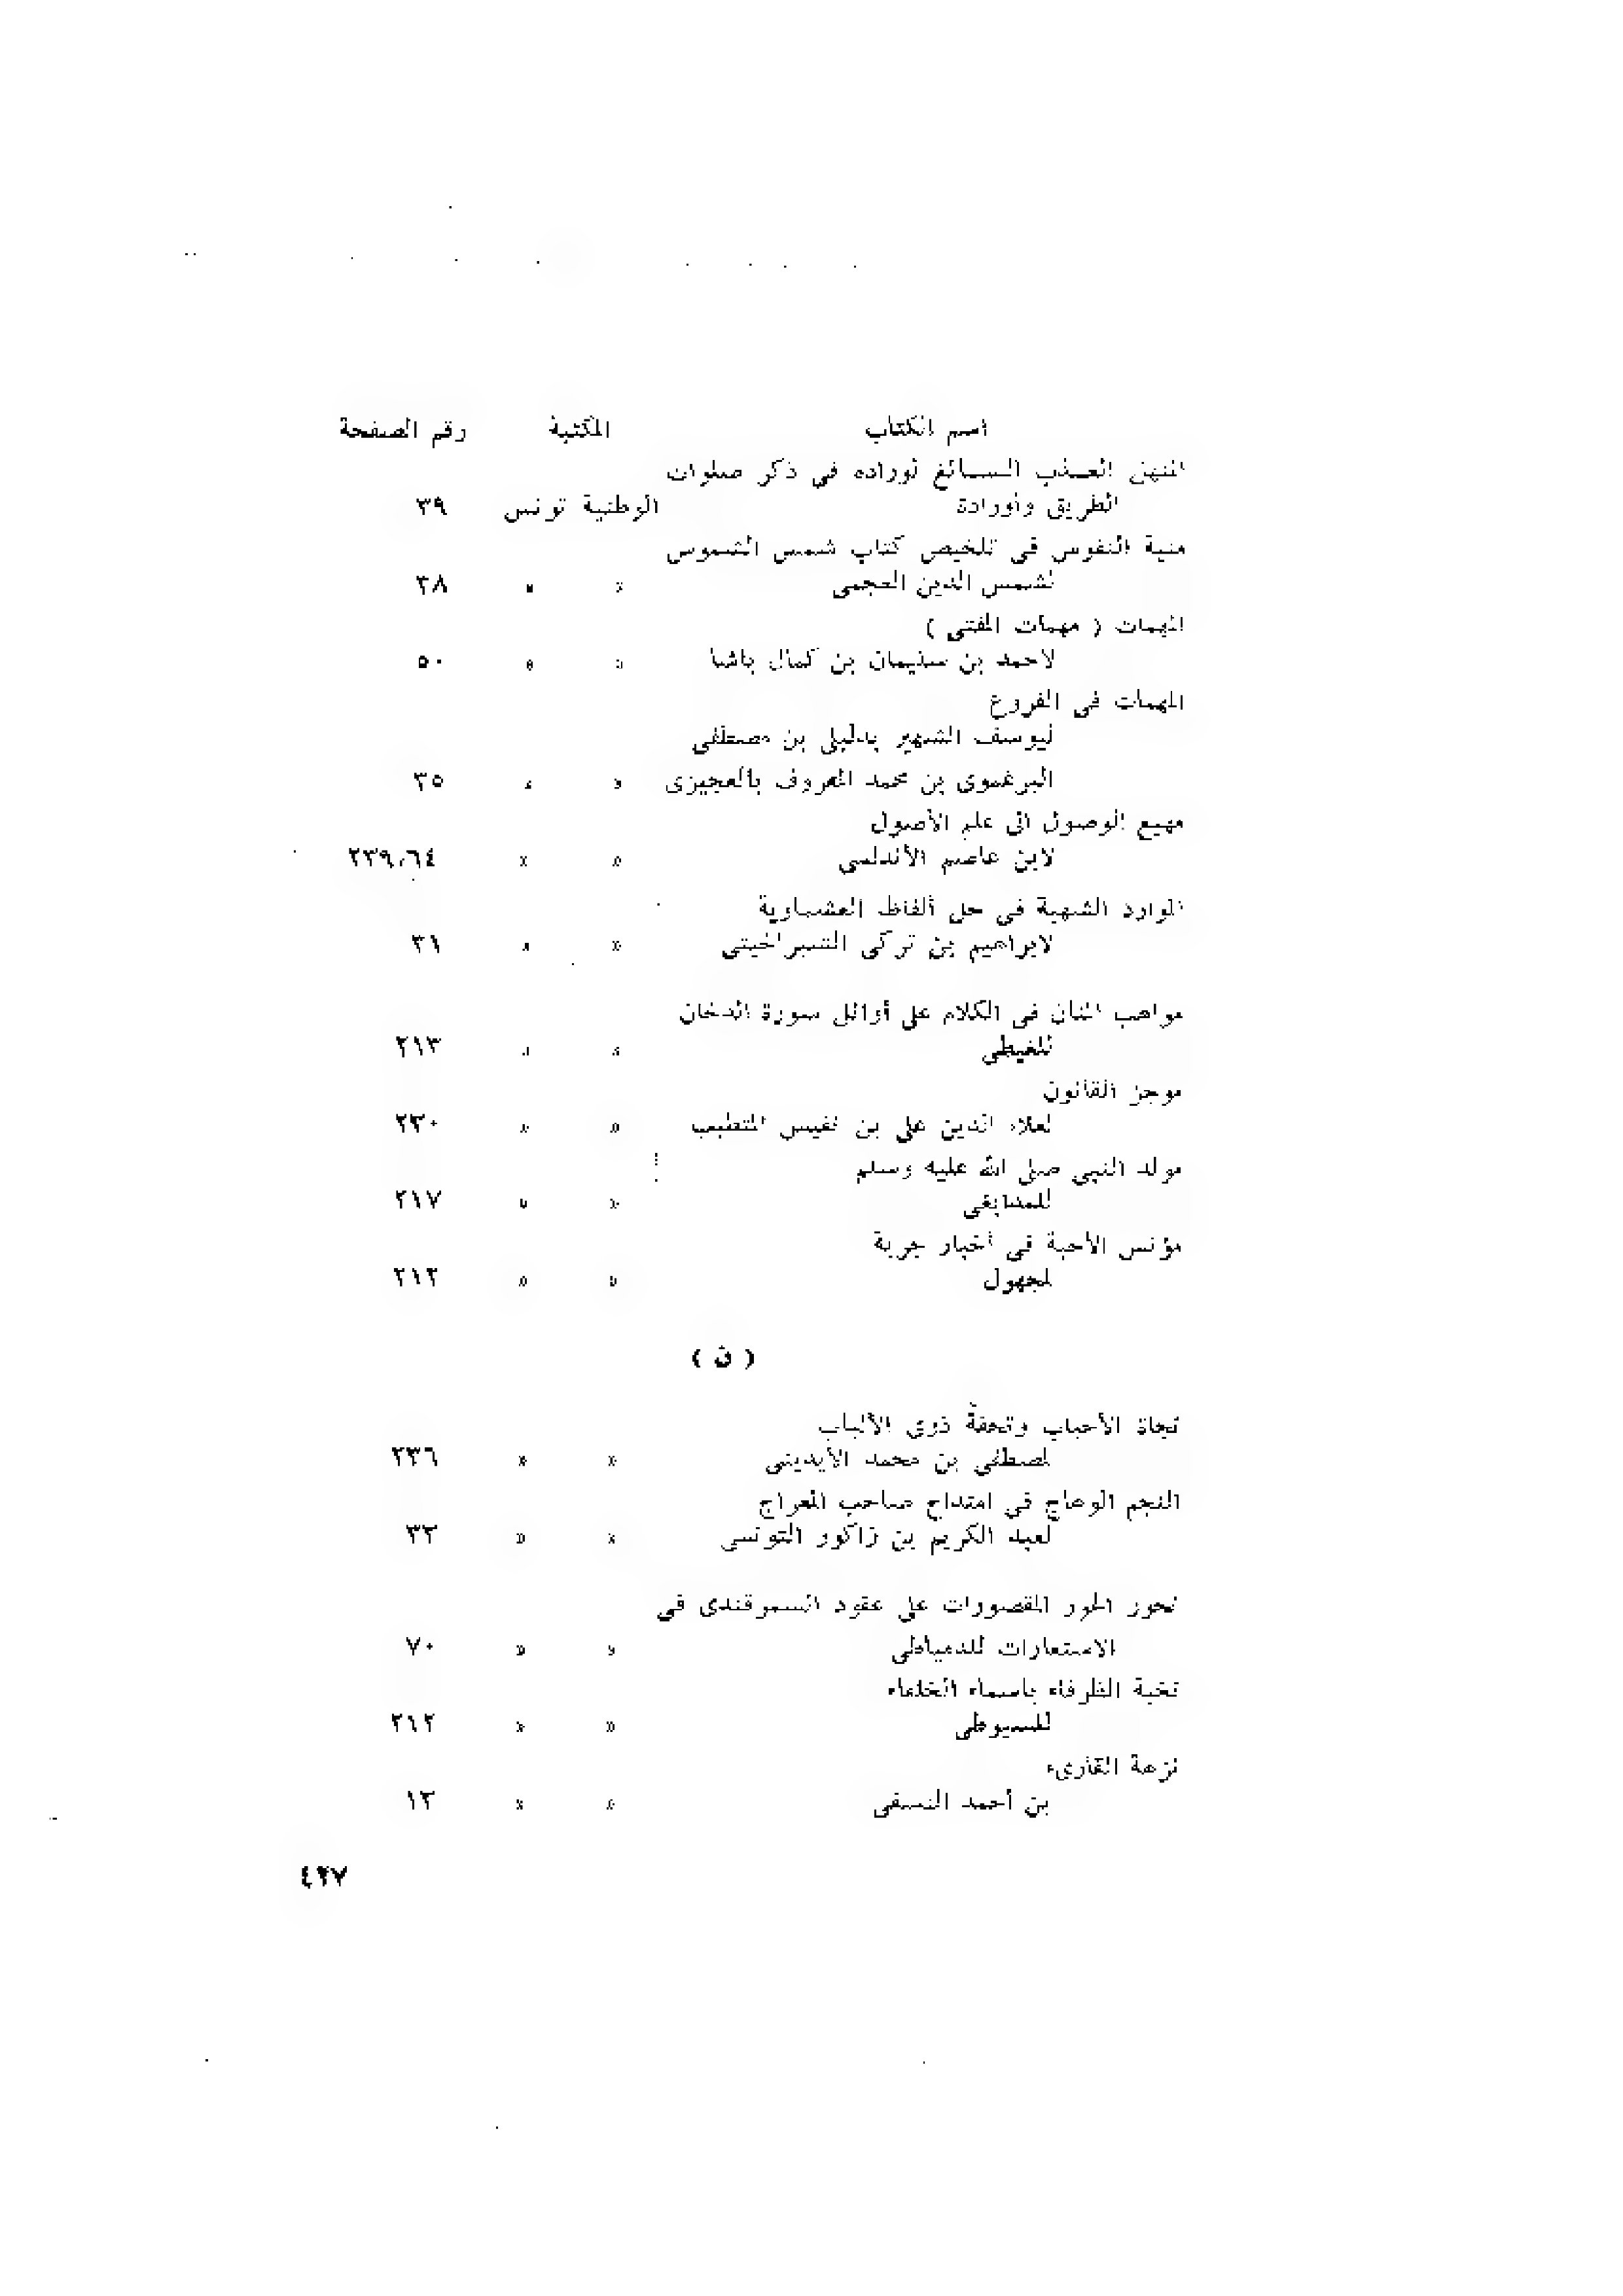 اسم الكتاب المكتبة رقم الصفحة
المنهل العذب السائغ لوراده في ذكر صلوات
الطريق وأوراده الوطنية تونس ٣٩
منية النفوس في تلخيص كتاب شمس الشموس
لشمس الدين العجمي » » ٣٨
المهمات ( مهمات المفتى )
لاحمد بن سليمان بن كمال باشا » » ٥٠
المهمات في الفروع
ليوسف الشهير بدليلي بن مصطفى
البرغموى بن محمد المعروف بالعجيزى » » ٣٥
مهيع الوصول الى علم الأصول
لابن عاصم الأندلسي » » ٢٣٩،٦٤
الموارد الشهية في حل ألفاظ العشماوية
لابراهيم بن تركى الشبراخيتى » » ٣١
مواهب المنان في الكلام على أوائل سورة الدخان
للغيطى » » ٢١٣
موجز القانون
لعلاء الدين على بن نفيس المتطبب » » ٢٣٠
مولد النبي صلى الله عليه وسلم
للمدابغى » » ٢١٧
مؤنس الأحبة في أخبار جربة
لمجهول » » ٢١٢
( ن )
نجاة الأحباب وتحفة ذوى الألباب
لمصطفى بن محمد الأيدينى » » ٢٣٦
النجم الوهاج في امتداح صاحب المعراج
لعبد الكريم بن زاكور التونسى » » ٣٢
نحور الحور المقصورات على عقود السمرقندى في
الاستعارات للدمياطى » » ٧٠
نخبة الظرفاء باسماء الخلفاء
للسيوطى » » ٢١٢
نزهة القارىء
بن أحمد النسفى » » ١٢
٤٢٧